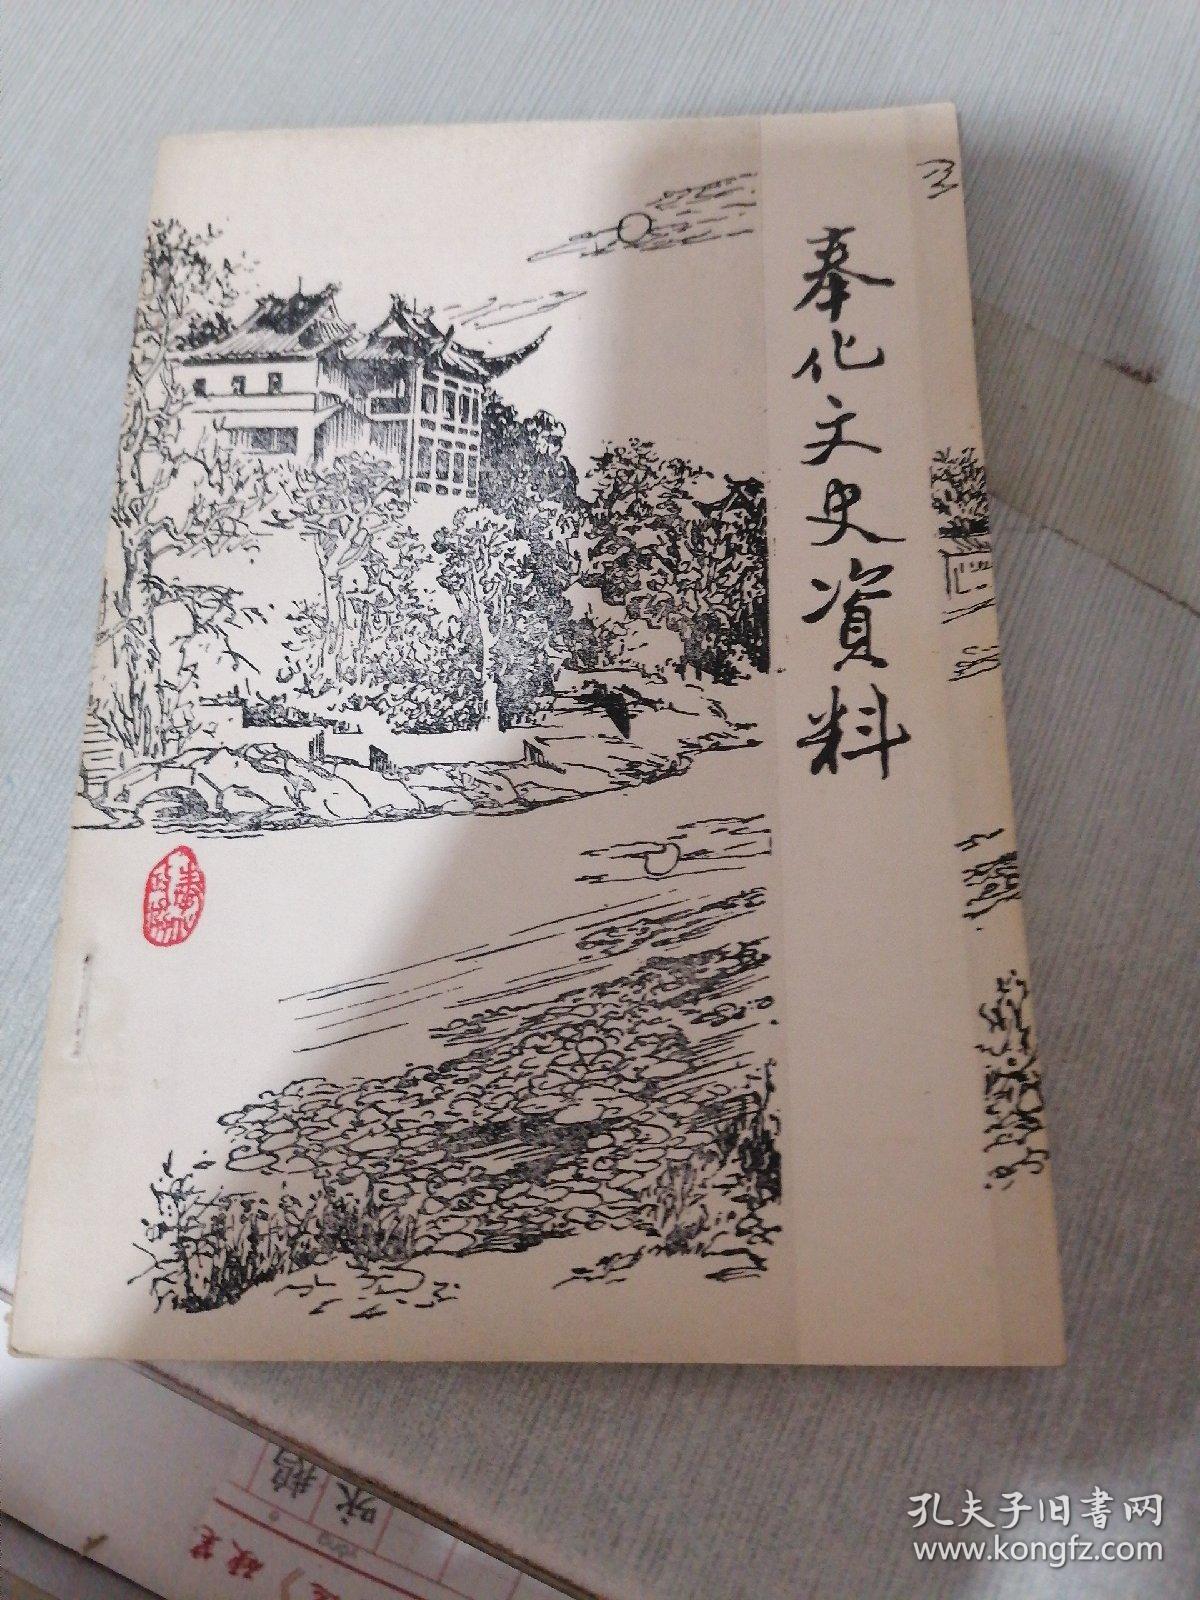 奉化文史資料
咏鹅
孔夫子旧书网
www.kongfz.com